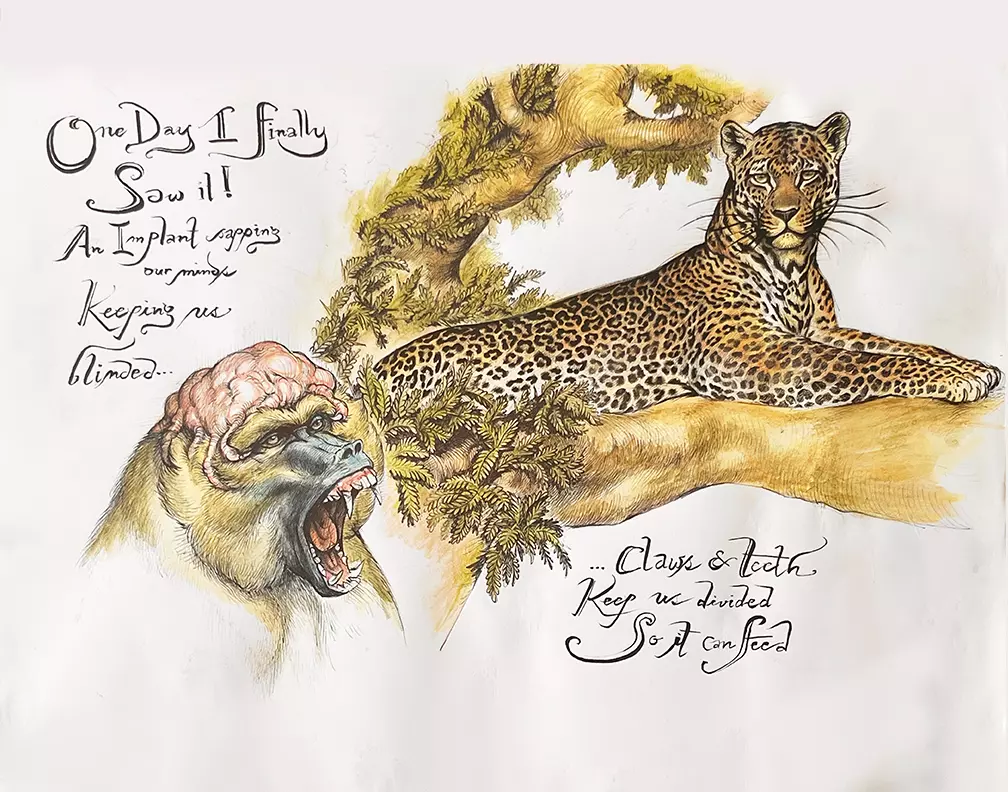 One Day I finally
Saw it!
An Implant sapping
our minds
Keeping us
blinded...
... Claws & teeth
Keep us divided
So it can feed